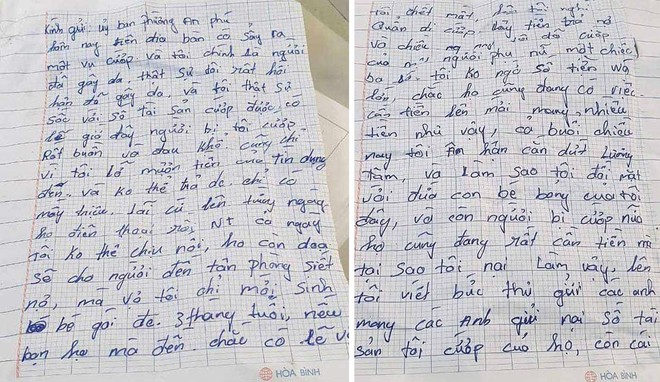 Kính gửi ủy ban phường An phú
hôm nay trên địa bàn có sảy ra
một vụ cướp và tôi chính là người
đã gây ra, thật sự tôi rất hối
hận đã gây ra, và tôi thật sự
sốc với số tài sản cướp được, có
lẽ giờ đây người bị tôi cướp
Rất buồn và đau khổ cũng chỉ
vì tôi lỡ mượn tiền của tín dụng
đen và ko thể trả đc. chỉ có
mấy triệu. lãi cứ lên từng ngày
họ điện thoại rồi, NT cả ngày
Tôi ko thể chịu nổi, họ còn dọa
sẽ cho người đến tận phòng siết
nợ, mà vợ tôi chỉ mới sinh
bé gái đc 3 tháng tuổi, nếu
bọn họ mà đến chắc có lẽ vợ
HÒA BÌNH
tôi chết mất, tôn nghĩ
Quẩn đi cướp lấy tiền trả nợ
và chiều nay tôi đã cướp
của người phụ nữ một chiếc
ba lô. tôi ko ngờ số tiền wá
lớn, chắc họ cũng đang có việc
cần tiền lên mới mang nhiều
tiền như vậy, cả buổi chiều
nay tôi ăn hăn cắn dứt Lương
Tâm, và Làm sao tôi đối mặt
với đứa con bé bỏng của tôi
đây, và con người bị cướp nữa
họ cũng đang rất cần tiền mà
tại sao tôi nại Làm vậy, lên
tôi viết bức thư gửi các anh
mong các Anh gửi nại số tài
sản tôi cướp cuả họ, còn cái
HÒA BÌNH